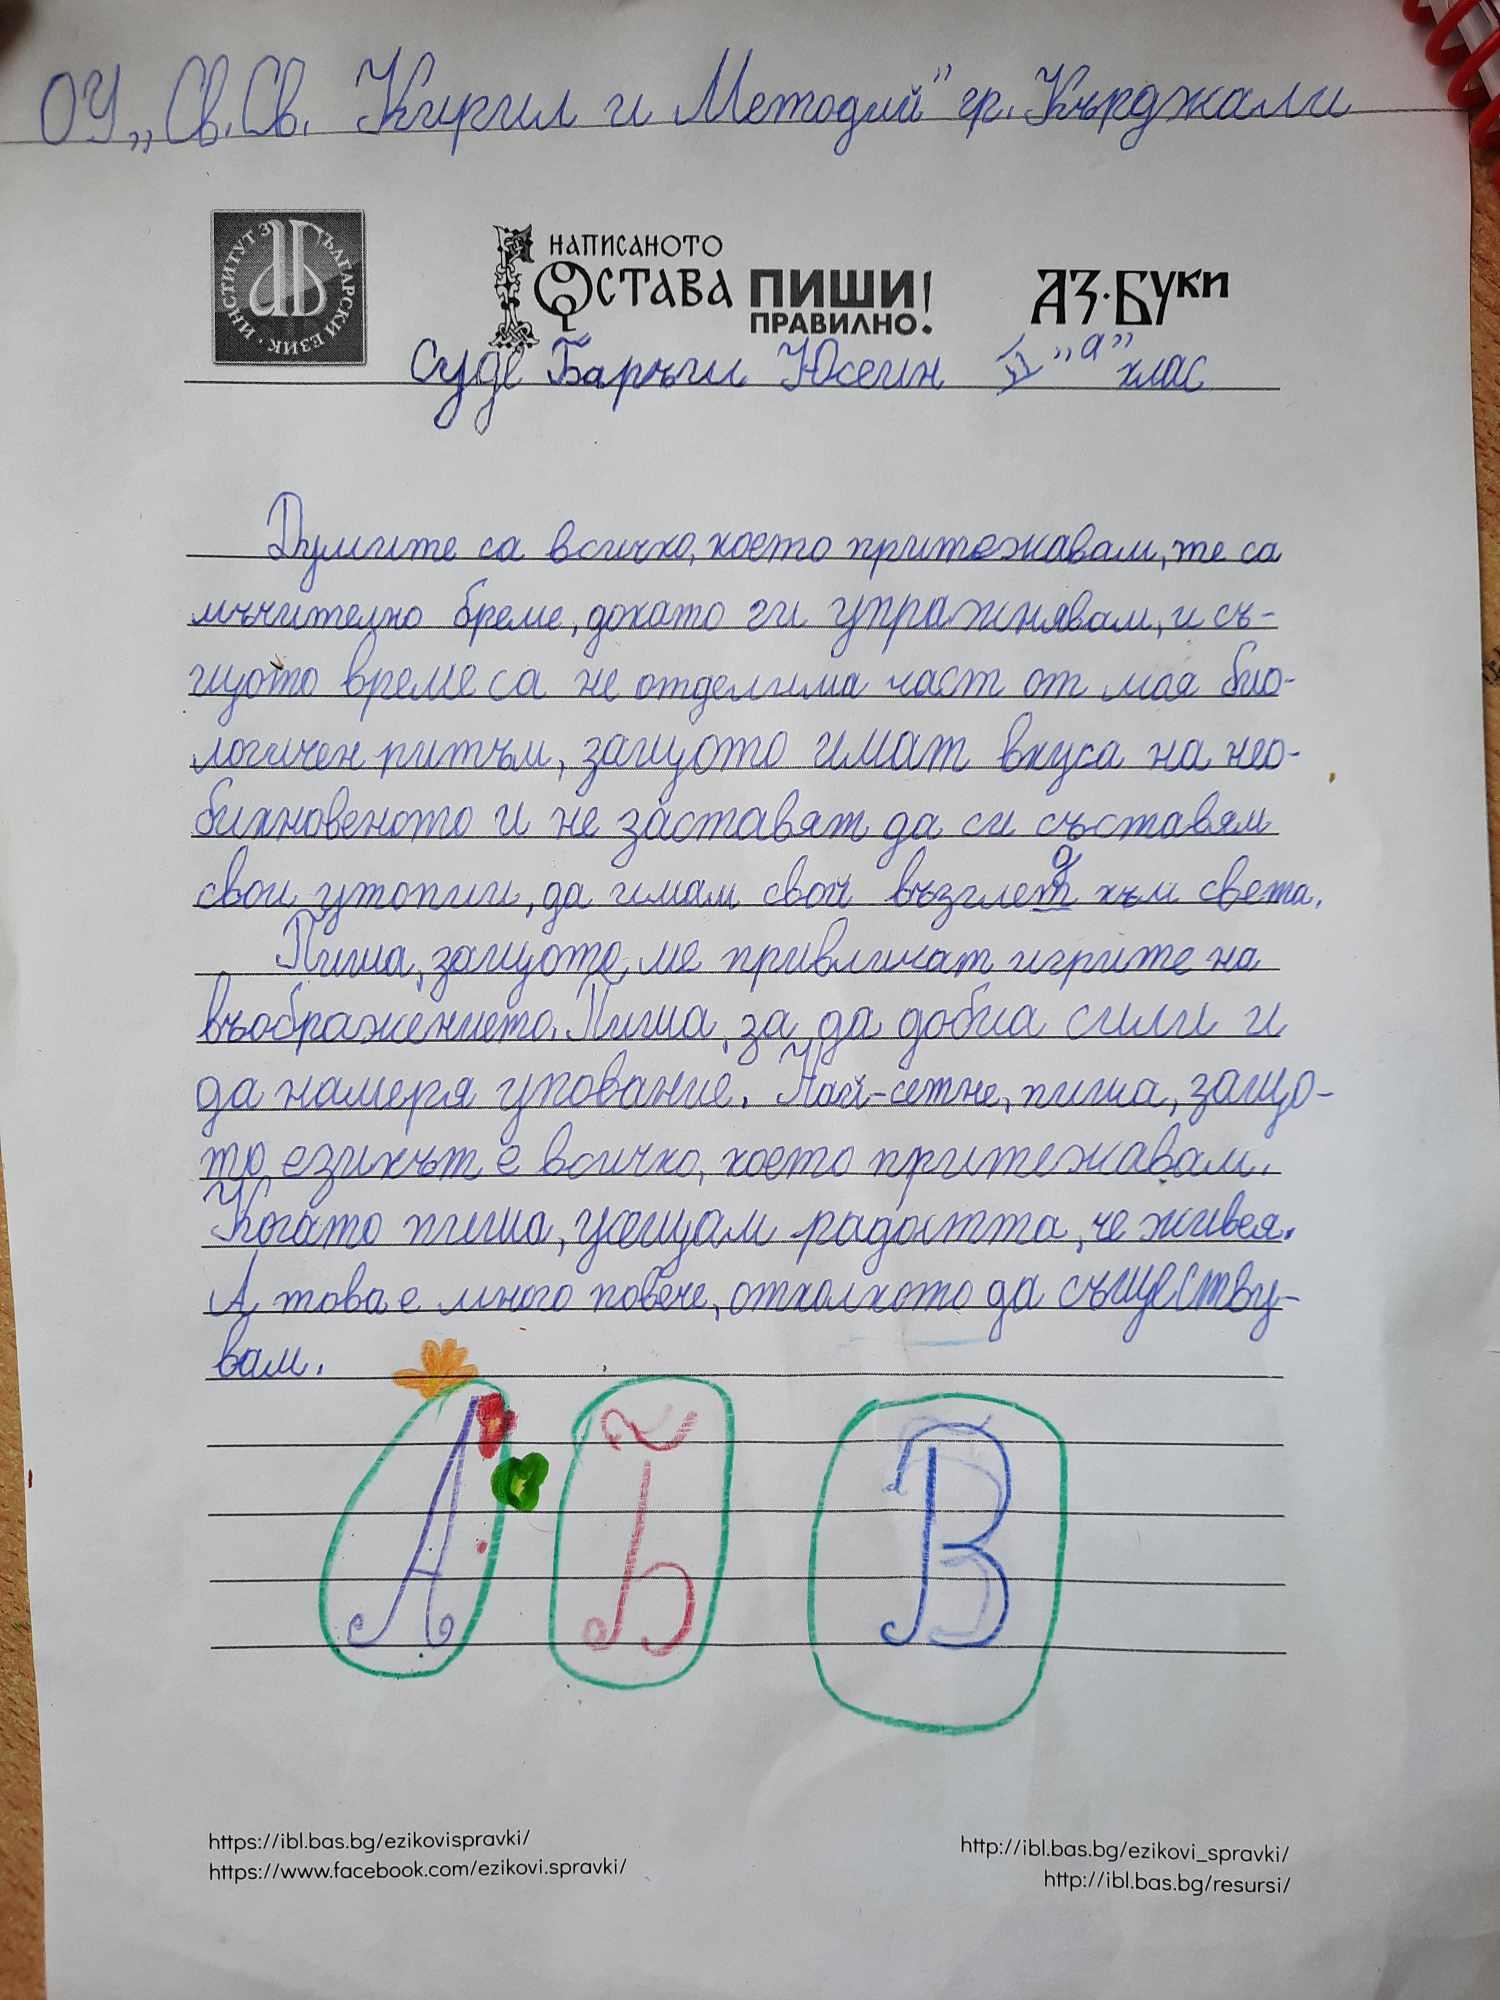 ОУ „Св. Св. Кирил и Методий" гр. Кърджали
ИНСТИТУТ ЗА БЪЛГАРСКИ ЕЗИК
НАПИСАНОТО
ОСТАВА ПИШИ!
ПРАВИЛНО!
АЗ·БУКИ
Суде Баръш Юсеин II „а" клас
Думите са всичко, което притежавам, те са
мъчително бреме, докато ги упражнявам, и съ-
щото време са не отделима част от мая био-
логичен ритъм, защото имат вкуса на нео-
бикновеното и не заставят да си съставям
свои утопии, да имам свой възглед към света.
Пиша, защото ме привличат игрите на
въображението. Пиша, за да добиа сили и
да намеря упование. Най-сетне, пиша, защо-
то езикът е всичко, което притежавам.
Когато пиша, усещам радостта, че живея.
А това е много повече, отколкото да съществу-
вам.
А Б В
https://ibl.bas.bg/ezikovispravki/
https://www.facebook.com/ezikovi.spravki/
http://ibl.bas.bg/ezikovi_spravki/
http://ibl.bas.bg/resursi/